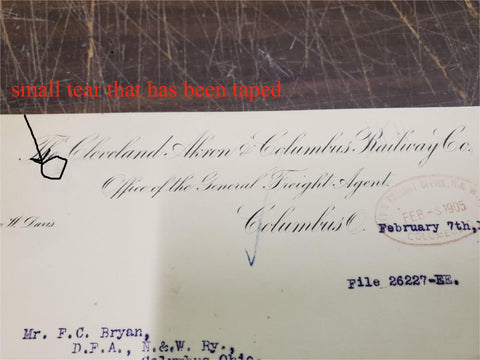 small tear that has been taped
The Cleveland Akron & Columbus Railway Co.
Office of the General Freight Agent.
Columbus O. February 7th,
H. Davis
FEB - 8 1905
File 26227-EE.
Mr. F.C. Bryan,
D.F.A., N.& W. Ry.,
Columbus Ohio.